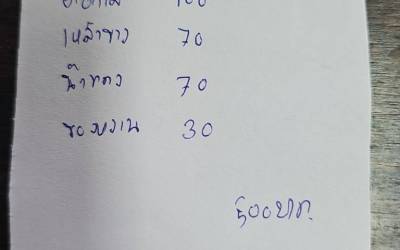 100
เหล้าขาว 70
น้ำแดง 70
ของหวาน 30
500บาท